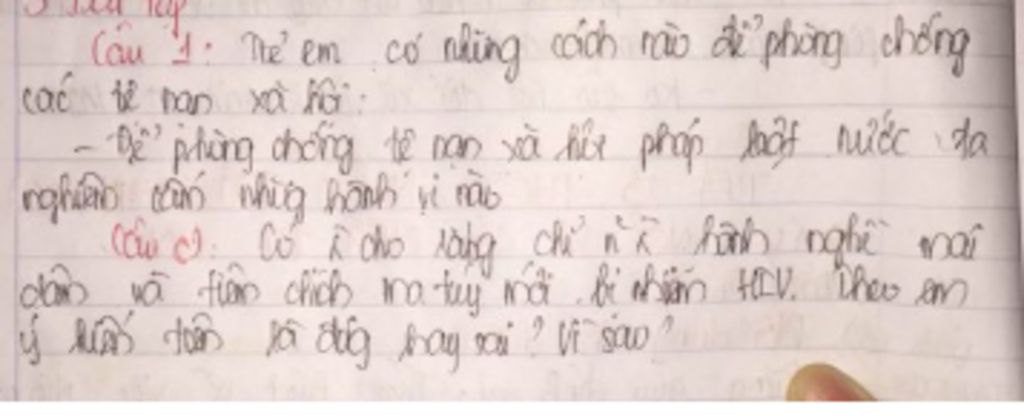 Câu 1: Theo em có những cách nào để phòng chống
các tệ nạn xã hội.
- Để phòng chống tệ nạn xã hội pháp luật nước ta
nghiêm cấm nhữg hành vi nào
Câu c). Có k cho rằng chỉ n~ k hành nghề mại
dâm và tiêm chích ma túy mới bị nhiễm HIV. Theo em
ý kiến trên là đúg hay sai? Vì sao?